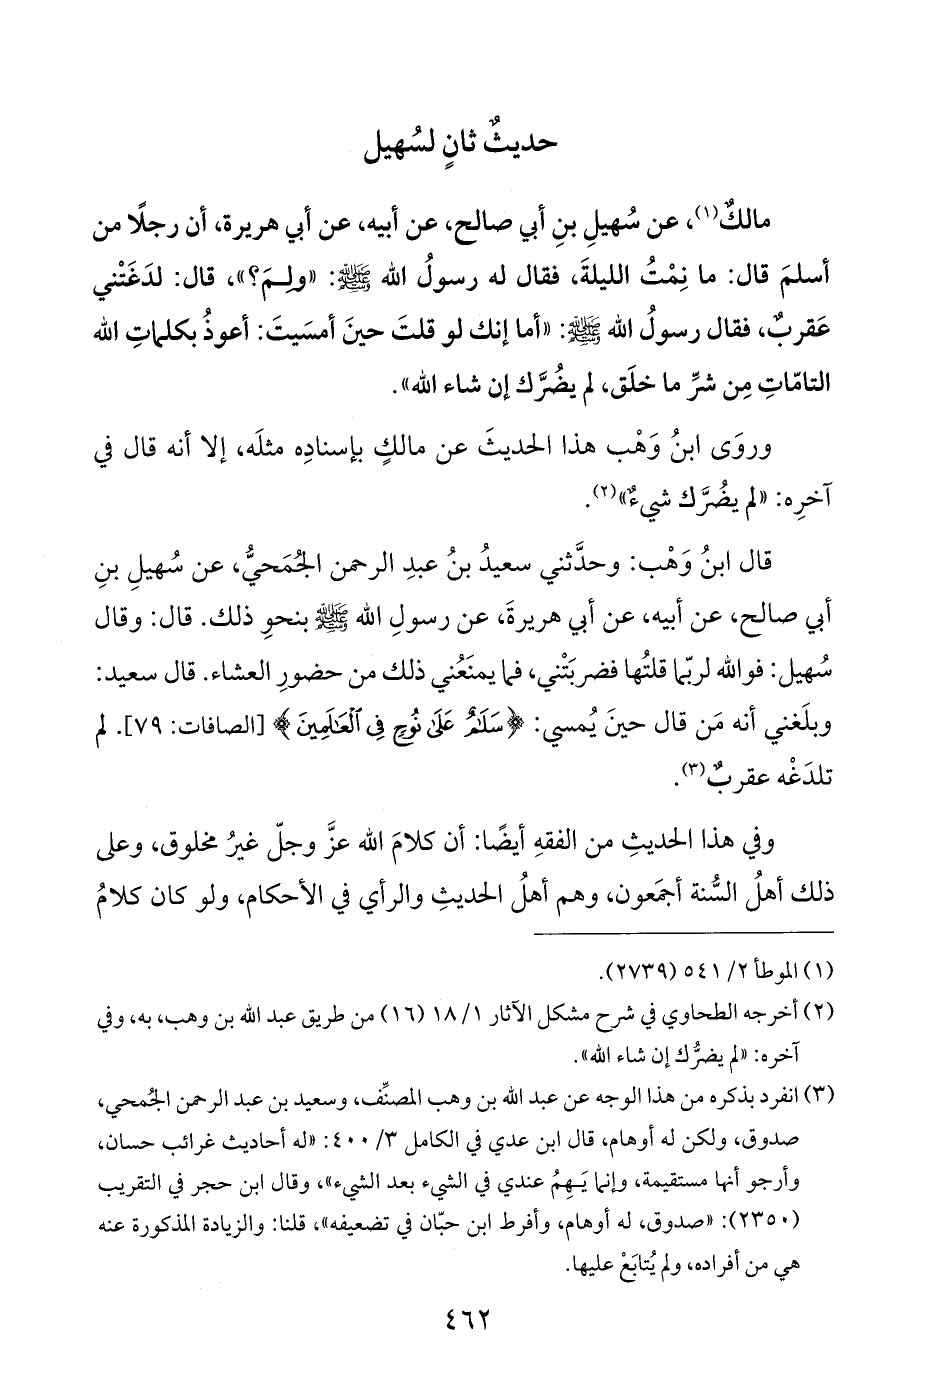 حديثٌ ثانٍ لسُهيل
مالكٌ(١)، عن سُهيلِ بنِ أبي صالح، عن أبيه، عن أبي هريرة، أن رجلًا من
أسلمَ قال: ما نِمْتُ الليلةَ، فقال له رسولُ الله ﷺ: «ولِمَ؟»، قال: لدَغَتْني
عَقربٌ، فقال رسولُ الله ﷺ: «أما إنك لو قلتَ حينَ أمسَيتَ: أعوذُ بكلماتِ الله
التامّاتِ مِن شرِّ ما خلَق، لم يضُرَّك إن شاء الله».
وروَى ابنُ وَهْب هذا الحديثَ عن مالكٍ بإسنادِه مثلَه، إلا أنه قال في
آخرِه: «لم يضُرَّك شيءٌ»(٢).
قال ابنُ وَهْب: وحدَّثني سعيدُ بنُ عبدِ الرحمن الجُمَحيُّ، عن سُهيلِ بنِ
أبي صالح، عن أبيه، عن أبي هريرةَ، عن رسولِ الله ﷺ بنحوِ ذلك. قال: وقال
سُهيل: فوالله لربّما قلتُها فضربَتْني، فما يمنَعُني ذلك من حضورِ العشاء. قال سعيد:
وبلَغني أنه مَن قال حينَ يُمسي: ﴿سَلَٰمٌ عَلَىٰ نُوحٍ فِي ٱلْعَٰلَمِينَ﴾ [الصافات: ٧٩]. لم
تلدَغْه عقربٌ(٣).
وفي هذا الحديثِ من الفقهِ أيضًا: أن كلامَ الله عزَّ وجلّ غيرُ مخلوق، وعلى
ذلك أهلُ السُّنة أجمَعون، وهم أهلُ الحديثِ والرأي في الأحكام، ولو كان كلامُ
(١) الموطأ ٢/ ٥٤١ (٢٧٣٩).
(٢) أخرجه الطحاوي في شرح مشكل الآثار ١/ ١٨ (١٦) من طريق عبد الله بن وهب، به، وفي
آخره: «لم يضرُّك إن شاء الله».
(٣) انفرد بذكره من هذا الوجه عن عبد الله بن وهب المصنِّف، وسعيد بن عبد الرحمن الجُمحي،
صدوق، ولكن له أوهام، قال ابن عدي في الكامل ٣/ ٤٠٠: «له أحاديث غرائب حسان،
وأرجو أنها مستقيمة، وإنما يَهِمُ عندي في الشيء بعد الشيء»، وقال ابن حجر في التقريب
(٢٣٥٠): «صدوق، له أوهام، وأفرط ابن حبّان في تضعيفه»، قلنا: والزيادة المذكورة عنه
هي من أفراده، ولم يُتابَعْ عليها.
٤٦٢